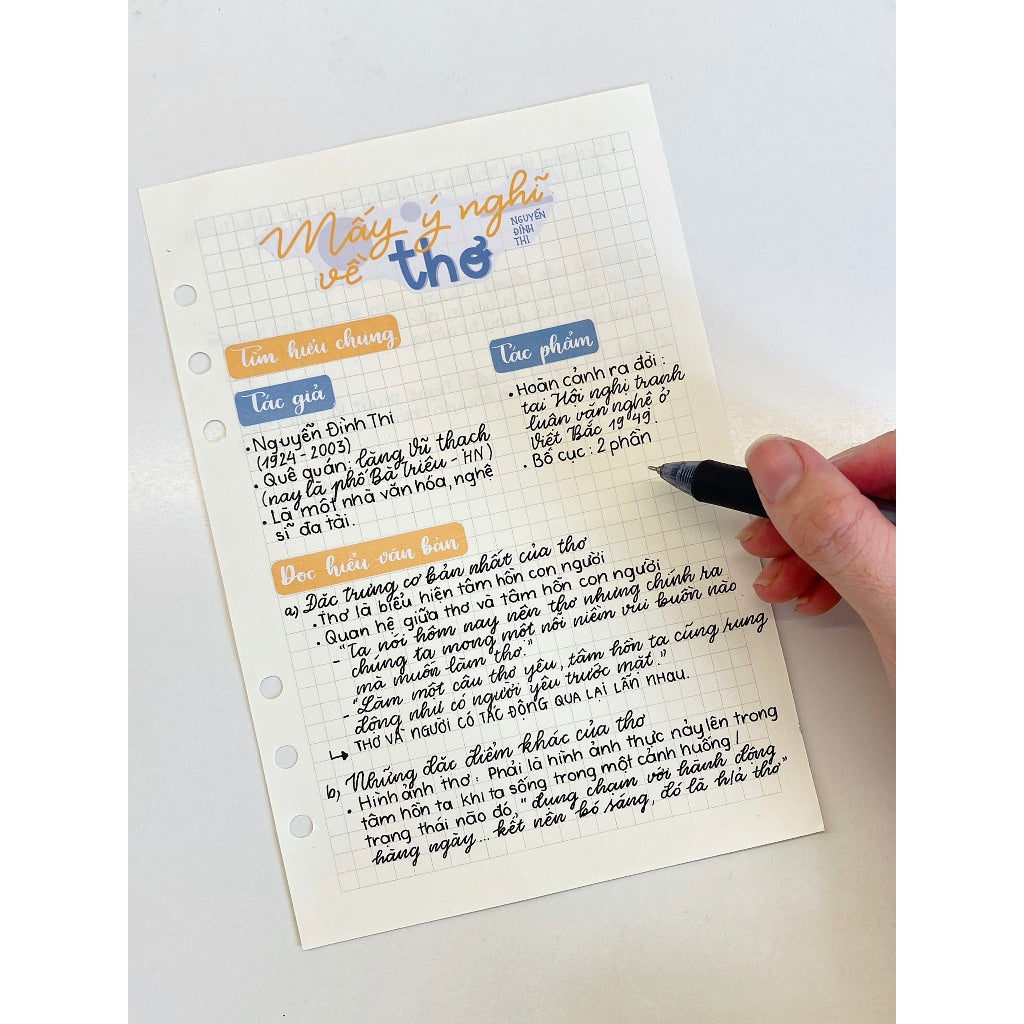 Mấy ý nghĩ
về thơ
NGUYỄN
ĐÌNH
THI
Tìm hiểu chung
Tác giả
• Nguyễn Đình Thi
(1924 - 2003)
• Quê quán: làng Vũ thạch
(nay là phố Bà Triệu - HN)
• Là một nhà văn hóa, nghệ
sĩ đa tài.
Tác phẩm
• Hoàn cảnh ra đời :
tại Hội nghị tranh
luận văn nghệ ở
Việt Bắc 1949.
• Bố cục : 2 phần
Đọc hiểu văn bản
a) Đặc trưng cơ bản nhất của thơ
• Thơ là biểu hiện tâm hồn con người
• Quan hệ giữa thơ và tâm hồn con người
- "Ta nói hôm nay nên thơ nhưng chính ra
chúng ta mong một nỗi niềm vui buồn nào
mà muốn làm thơ."
- "Làm một câu thơ yêu, tâm hồn ta cũng rung
động như có người yêu trước mắt."
↳ THƠ VÀ NGƯỜI CÓ TÁC ĐỘNG QUA LẠI LẪN NHAU.
b) Những đặc điểm khác của thơ
• Hình ảnh thơ : Phải là hình ảnh thực nảy lên trong
tâm hồn ta khi ta sống trong một cảnh huống /
trạng thái nào đó, "đụng chạm với hành động
hàng ngày... kết nên bó sáng, đó là h/ả thơ"